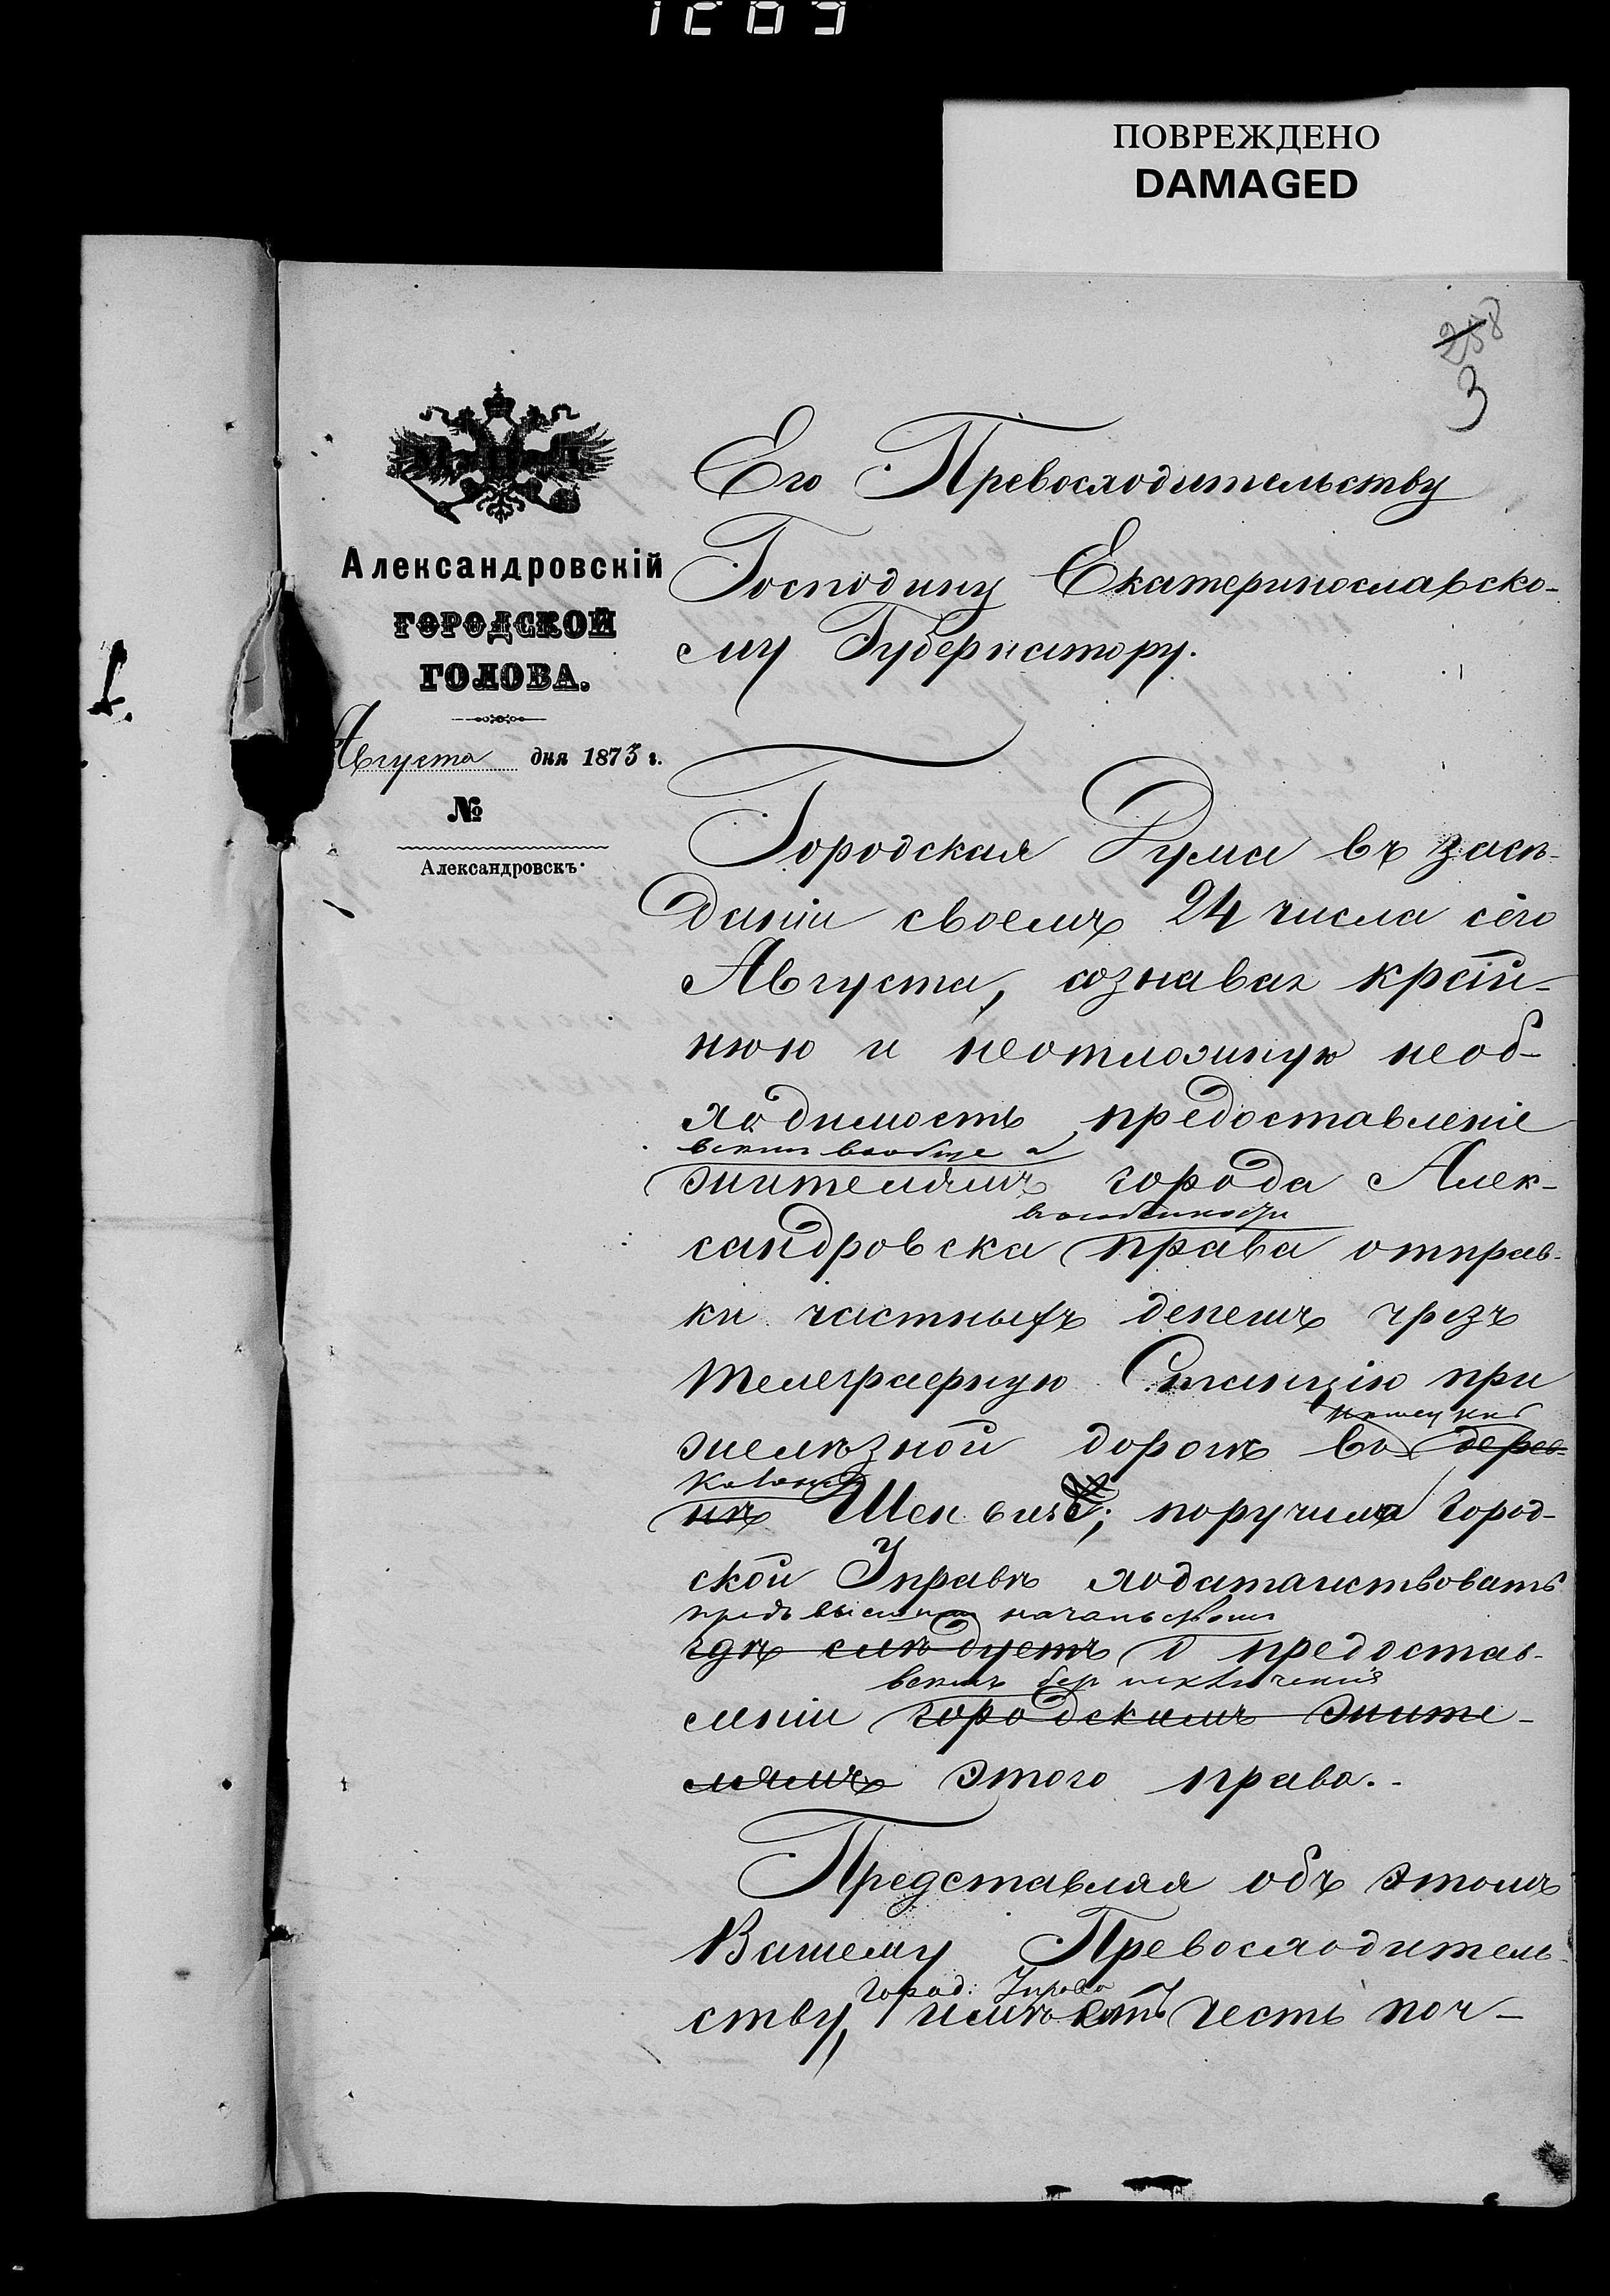 ПОВРЕЖДЕНО
DAMAGED
258
3
Александровскій
ГОРОДСКОЙ
ГОЛОВА.
Августа дня 1873 г.
№
Александровскъ.
Его Превосходительству
Господину Екатеринославско-
му Губернатору.
Городская Дума въ засѣ-
даніи своемъ 24 числа сего
Августа, сознавая край-
нюю и неотложную необ-
ходимость предоставленіе
всѣмъ вообще а
жителямъ города Алек-
въ особенности
сандровска права отправ-
ки частныхъ депешъ чрезъ
телеграфную Станцію при
желѣзной дорогѣ въ дерев-
колоніи
нѣ Шенвизе; поручила Город-
ской Управѣ ходатайствовать
предъ высшимъ начальствомъ
гдѣ слѣдуетъ о предостав-
всѣмъ безъ исключенія
леніи городскимъ жите-
лямъ этого права.
Представляя объ этомъ
Вашему Превосходитель-
Город: Управа
ству, имѣетъ честь поч-